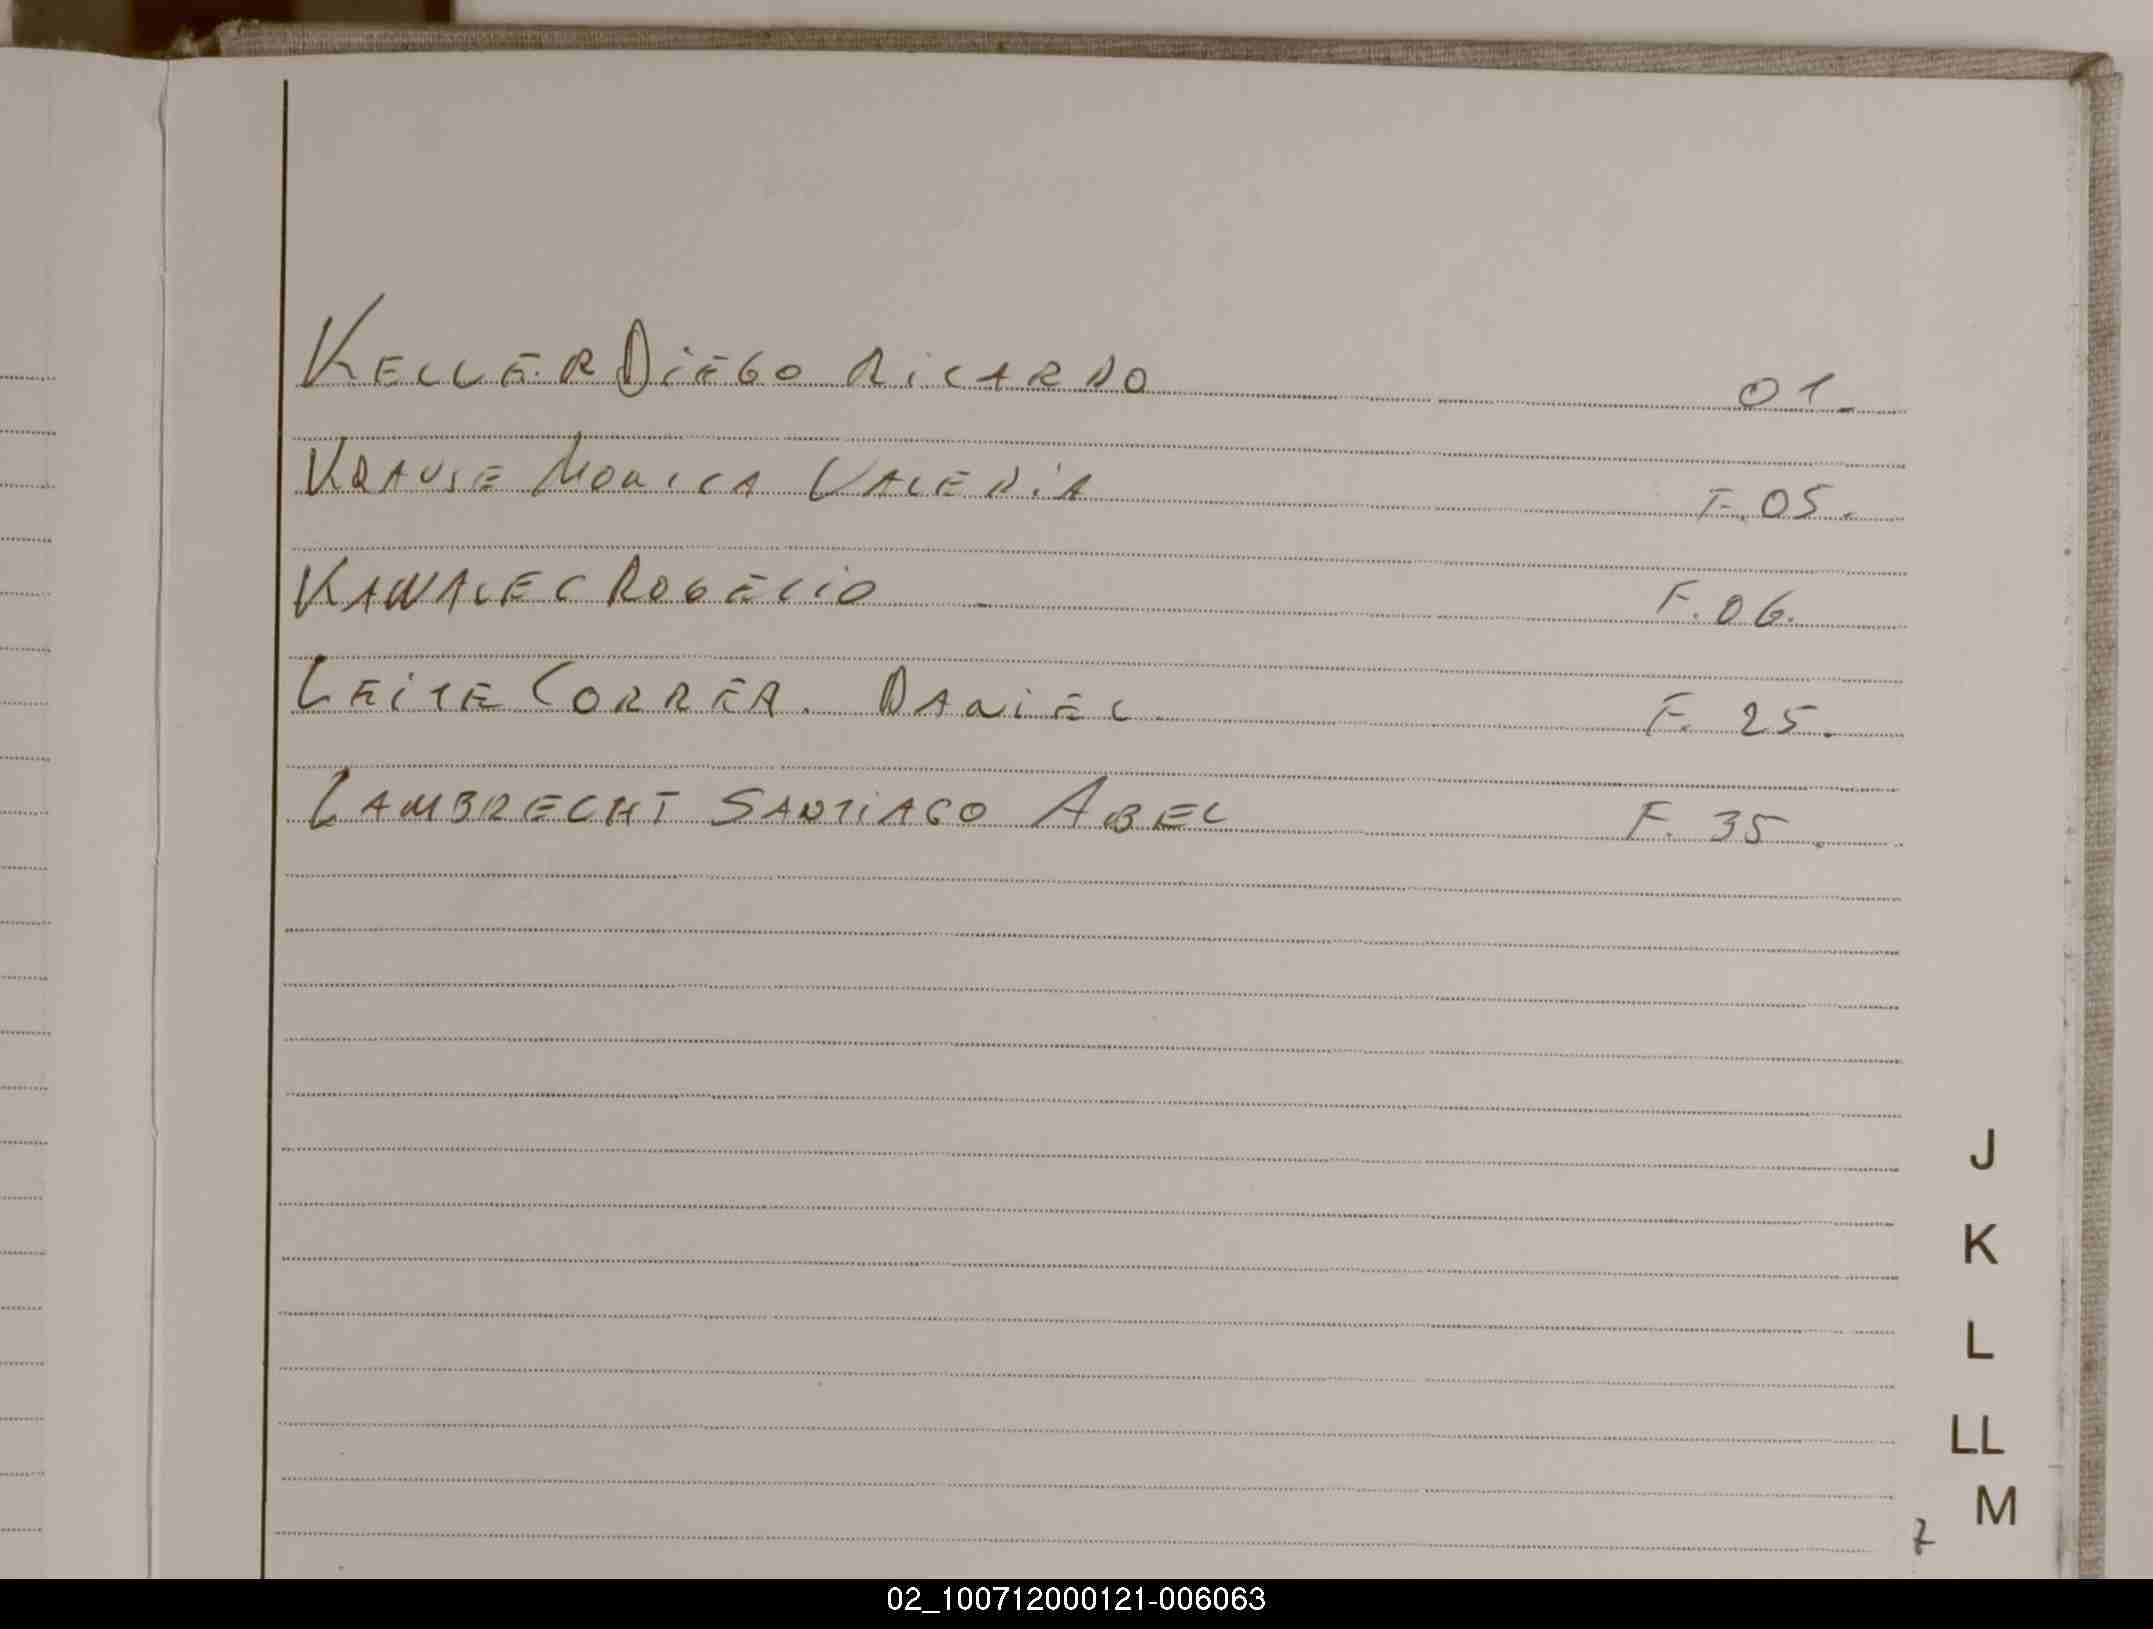 KELLER DiEGO RiCARDO 01.
KRAUSE MONICA VALERiA F.05.
KAWALEC ROGELiO F.06.
LEiTE CORREA. DANiEL F. 25.
LAMBRECHT SANTiAGO ABEL F. 35.
J
K
L
LL
M
7
02_100712000121-006063